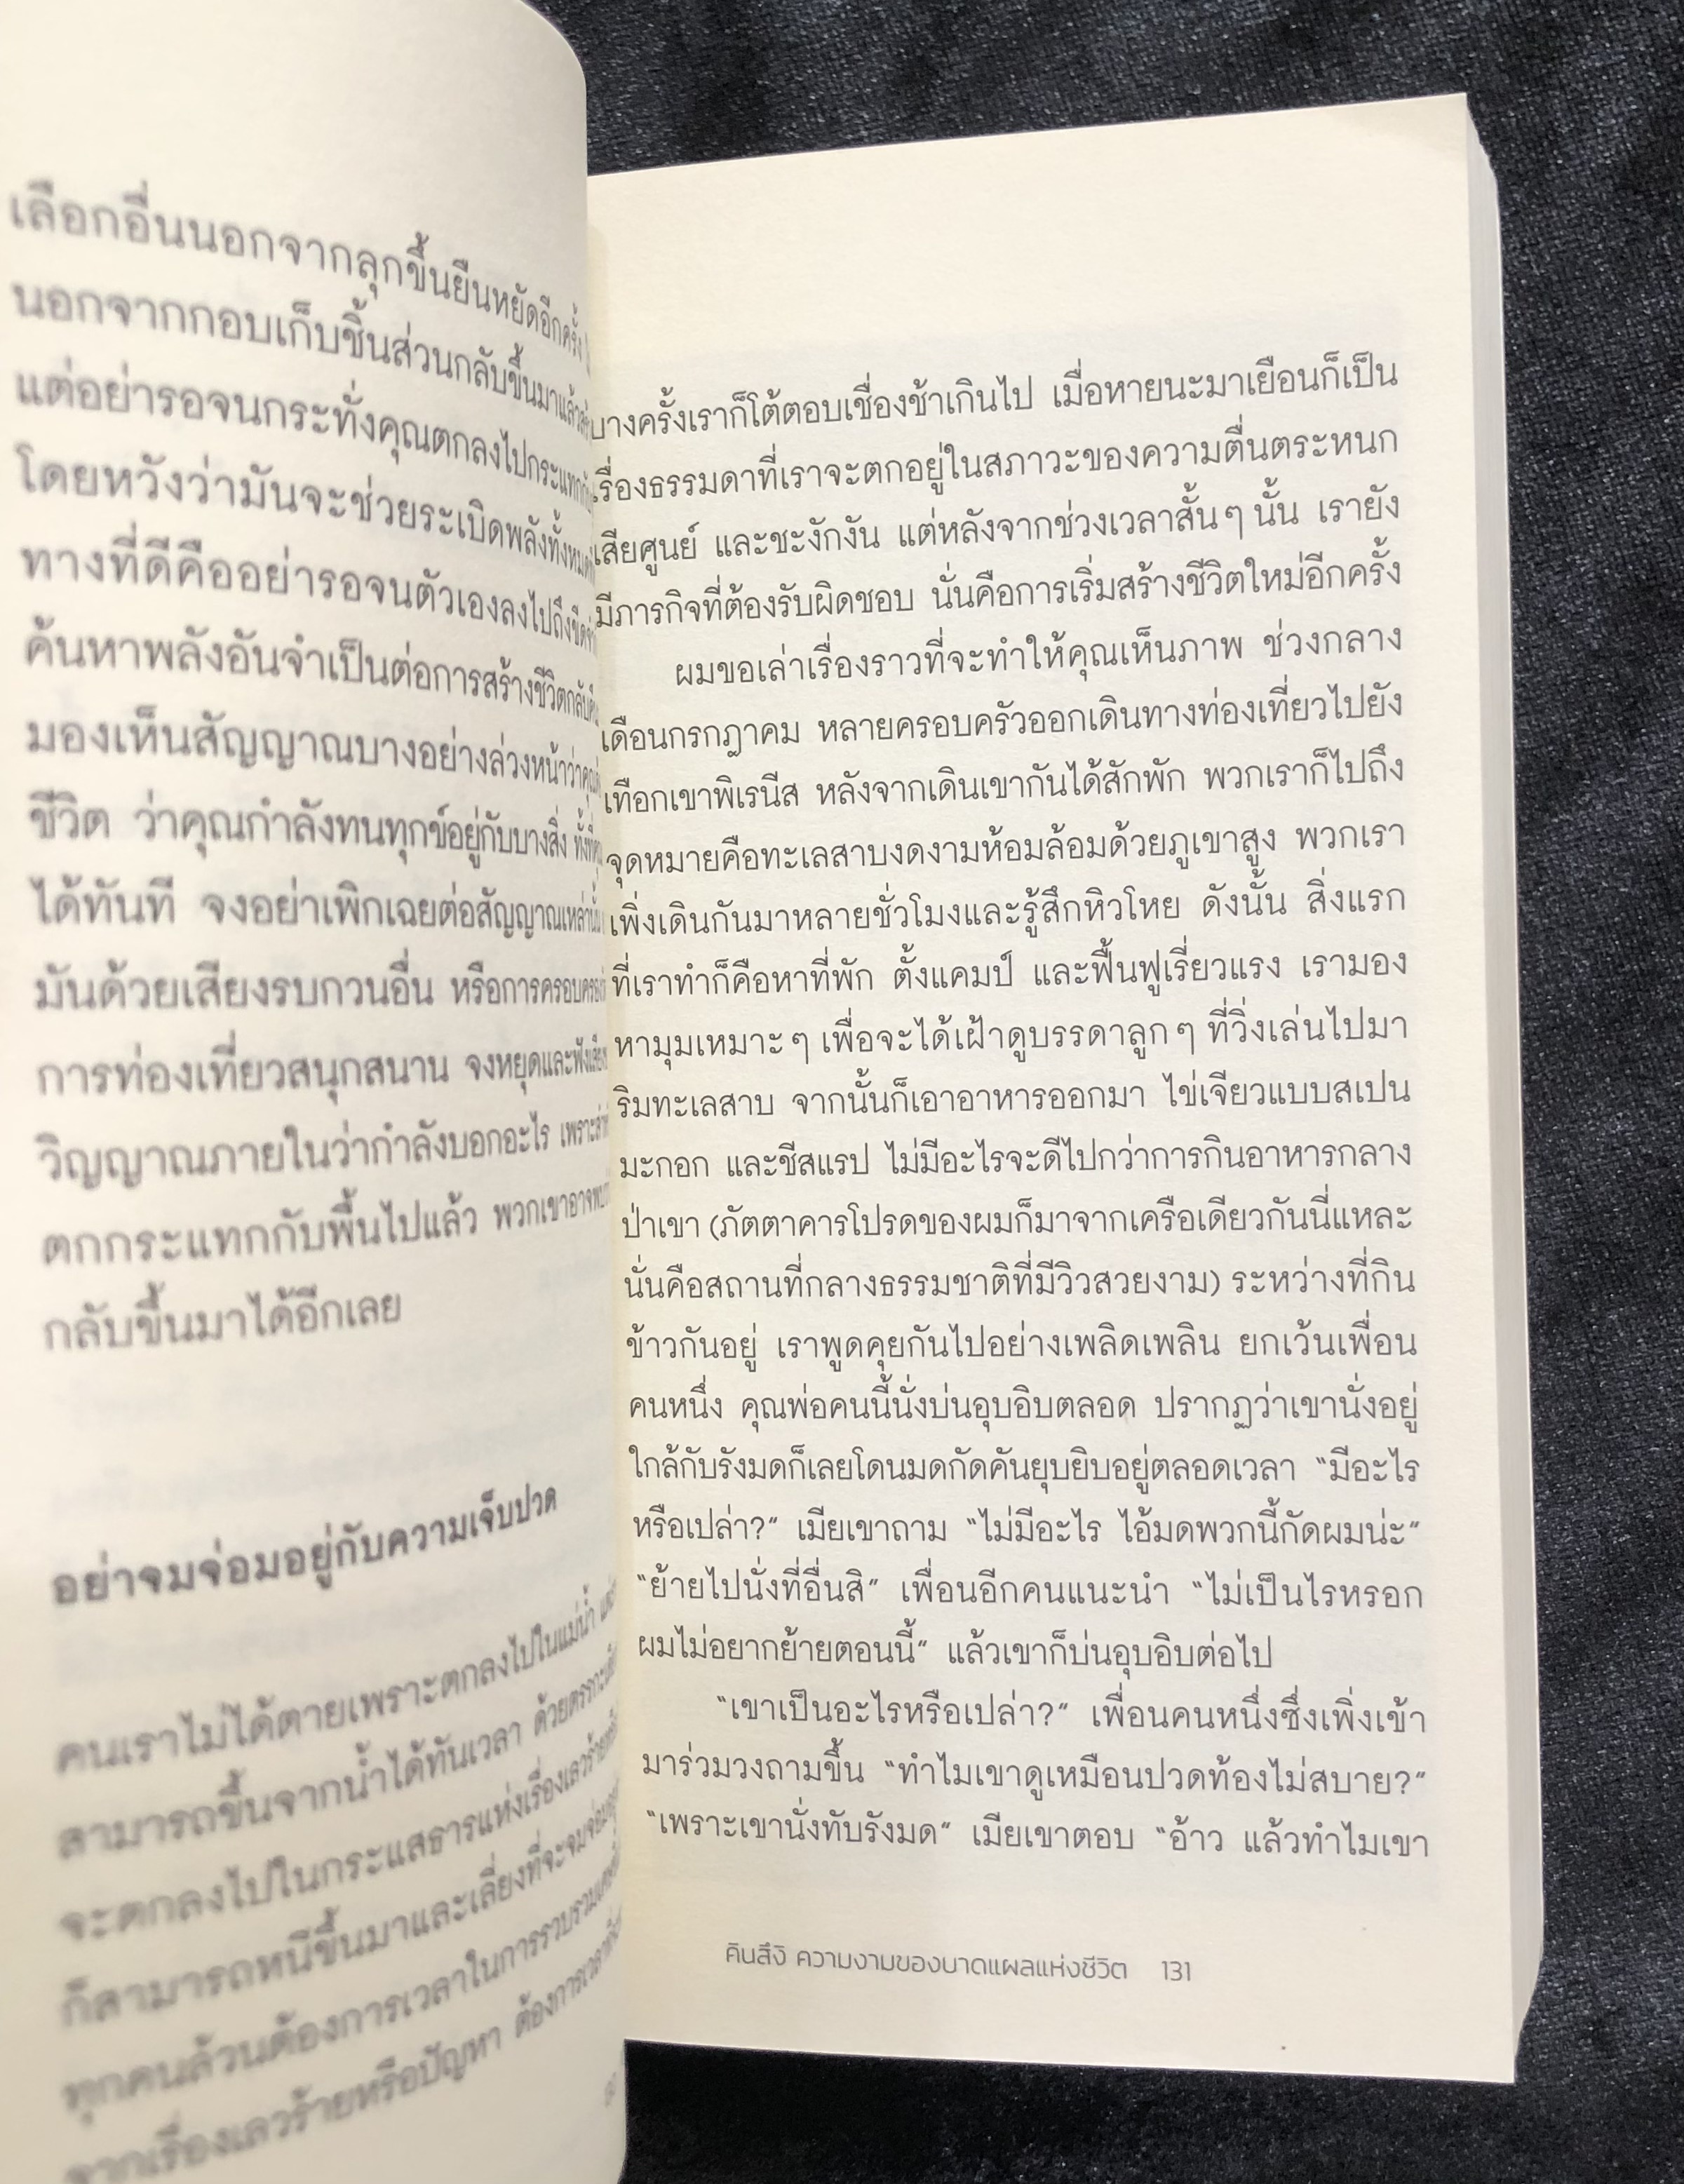 เลือกอื่นนอกจากลุกขึ้นยืนหยัดอีกครั้ง
นอกจากกอบเก็บชิ้นส่วนกลับขึ้นมาแล้ว
แต่อย่ารอจนกระทั่งคุณตกลงไปกระแทก
โดยหวังว่ามันจะช่วยระเบิดพลังทั้งหมด
ทางที่ดีคืออย่ารอจนตัวเองลงไปถึงขีด
ค้นหาพลังอันจำเป็นต่อการสร้างชีวิตกลับ
มองเห็นสัญญาณบางอย่างล่วงหน้าว่า
ชีวิต ว่าคุณกำลังทนทุกข์อยู่กับบางสิ่ง
ได้ทันที จงอย่าเพิกเฉยต่อสัญญาณเหล่านั้น
มันด้วยเสียงรบกวนอื่น หรือการ
การท่องเที่ยวสนุกสนาน จงหยุดและฟังเสียง
วิญญาณภายในว่ากำลังบอกอะไร เพราะ
ตกกระแทกกับพื้นไปแล้ว พวกเขาอาจ
กลับขึ้นมาได้อีกเลย
อย่าจมจ่อมอยู่กับความเจ็บปวด
คนเราไม่ได้ตายเพราะตกลงไปในแม่น้ำ
สามารถขึ้นจากน้ำได้ทันเวลา ด้วยตรรกะ
จะตกลงไปในกระแสธารแห่งเรื่องเลวร้าย
ก็สามารถหนีขึ้นมาและเลี่ยงที่จะจมจ่อม
ทุกคนล้วนต้องการเวลาในการรวบรวม
จากเรื่องเลวร้ายหรือปัญหา ต้องการเวลา
บางครั้งเราก็โต้ตอบเชื่องช้าเกินไป เมื่อหายนะมาเยือนก็เป็น
เรื่องธรรมดาที่เราจะตกอยู่ในสภาวะของความตื่นตระหนก
เสียศูนย์ และชะงักงัน แต่หลังจากช่วงเวลาสั้นๆ นั้น เรายัง
มีภารกิจที่ต้องรับผิดชอบ นั่นคือการเริ่มสร้างชีวิตใหม่อีกครั้ง
ผมขอเล่าเรื่องราวที่จะทำให้คุณเห็นภาพ ช่วงกลาง
เดือนกรกฎาคม หลายครอบครัวออกเดินทางท่องเที่ยวไปยัง
เทือกเขาพิเรนีส หลังจากเดินเขากันได้สักพัก พวกเราก็ไปถึง
จุดหมายคือทะเลสาบงดงามห้อมล้อมด้วยภูเขาสูง พวกเรา
เพิ่งเดินกันมาหลายชั่วโมงและรู้สึกหิวโหย ดังนั้น สิ่งแรก
ที่เราทำก็คือหาที่พัก ตั้งแคมป์ และฟื้นฟูเรี่ยวแรง เรามอง
หามุมเหมาะๆ เพื่อจะได้เฝ้าดูบรรดาลูกๆ ที่วิ่งเล่นไปมา
ริมทะเลสาบ จากนั้นก็เอาอาหารออกมา ไข่เจียวแบบสเปน
มะกอก และชีสแรป ไม่มีอะไรจะดีไปกว่าการกินอาหารกลาง
ป่าเขา (ภัตตาคารโปรดของผมก็มาจากเครือเดียวกันนี่แหละ
นั่นคือสถานที่กลางธรรมชาติที่มีวิวสวยงาม) ระหว่างที่กิน
ข้าวกันอยู่ เราพูดคุยกันไปอย่างเพลิดเพลิน ยกเว้นเพื่อน
คนหนึ่ง คุณพ่อคนนี้นั่งบ่นอุบอิบตลอด ปรากฏว่าเขานั่งอยู่
ใกล้กับรังมดก็เลยโดนมดกัดคันยุบยิบอยู่ตลอดเวลา “มีอะไร
หรือเปล่า?” เมียเขาถาม “ไม่มีอะไร ไอ้มดพวกนี้กัดผมน่ะ”
“ย้ายไปนั่งที่อื่นสิ” เพื่อนอีกคนแนะนำ “ไม่เป็นไรหรอก
ผมไม่อยากย้ายตอนนี้” แล้วเขาก็บ่นอุบอิบต่อไป
“เขาเป็นอะไรหรือเปล่า?” เพื่อนคนหนึ่งซึ่งเพิ่งเข้า
มาร่วมวงถามขึ้น “ทำไมเขาดูเหมือนปวดท้องไม่สบาย?”
“เพราะเขานั่งทับรังมด” เมียเขาตอบ “อ้าว แล้วทำไมเขา
คินสึงิ ความงามของบาดแผลแห่งชีวิต 131